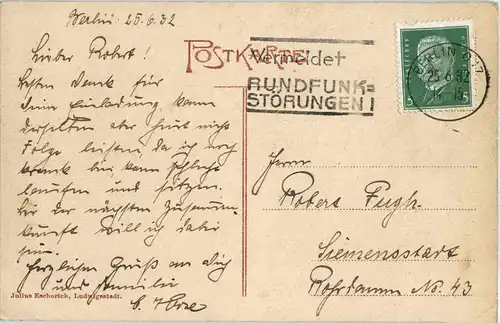 Berlin 25.6.32
Lieber Robert!
Besten Dank für
Deine Einladung, kann
derselben aber heut nicht
Folge leisten, da ich noch
krank bin, kann schlecht
laufen und sitzen.
Bei der nächsten Zusamm-
kunft will ich dabei
sein.
Herzlichen Gruß an dich
und Familie
POSTKARTE
Vermeidet
RUNDFUNK=
STÖRUNGEN!
BERLIN
25.6.32
5 5
Herrn
Robert Pugh.
Siemensstadt
Rohrdamm No. 43
Julius Escherich, Ludwigsstadt.